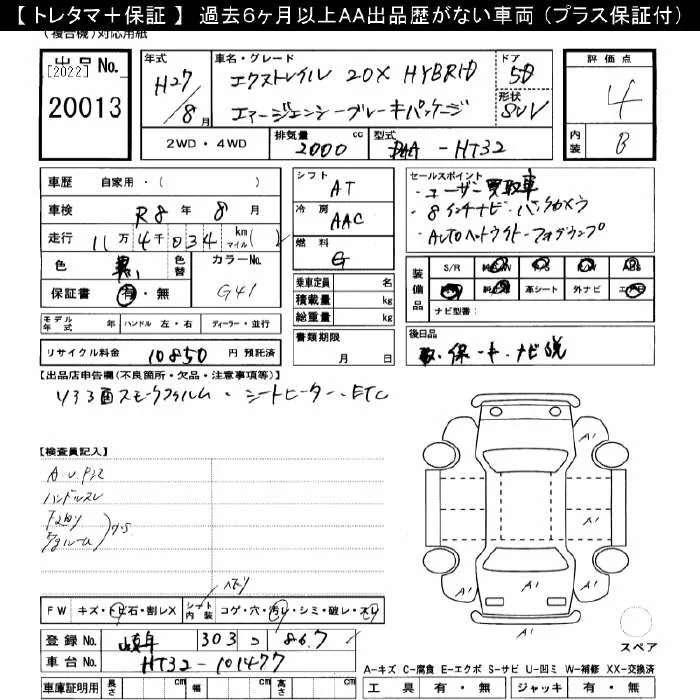 【 トレタマ＋保証 】 過去6ヶ月以上AA出品歴がない車両（プラス保証付）
(複合機)対応用紙
出品No.
[2022]
20013
年式
H27/8月
車名・グレード
エクストレイル 20X HYBRID
エマージェンシーブレーキパッケージ
ドア
5D
形状
SUV
評価点
4
内装
B
2WD・4WD
排気量
2000 cc
型式
DAA-HT32
車歴 自家用・( )
車検 R8年 8月
走行 11万4千034 km マイル( )
色 黒 色替 カラーNo.
G41
保証書 有・無
シフト
AT
冷房
AAC
燃料
G
乗車定員 名
積載量 kg
総重量 kg
セールスポイント
・ユーザー買取車
・8インチナビ・バックカメラ
・AUTOヘッドライト・フォグランプ
装備品
S/R
革シート 外ナビ
ナビ型番:
モデル年式 年 ハンドル 左・右 ディーラー・並行
リサイクル料金 10850 円 預託済
書類期限
月 日
後日品
取・保・キ・ナビ説
【出品店申告欄(不良箇所・欠品・注意事項等)】
リヤ3面スモークフィルム・シートヒーター・ETC
【検査員記入】
ハンドルスレ
A1
A1
A1
A1
A1
A1
FW キズ・トビ石・割レX シート内装 コゲ・穴・汚レ・シミ・破レ・スレ
登録No. 岐阜 303 つ 867
車台No. HT32-101477
車庫証明用 長さ cm 幅 cm 高さ cm
スペア
A-キズ C-腐食 E-エクボ S-サビ U-凹ミ W-補修 XX-交換済
工具 有・無 ジャッキ 有・無